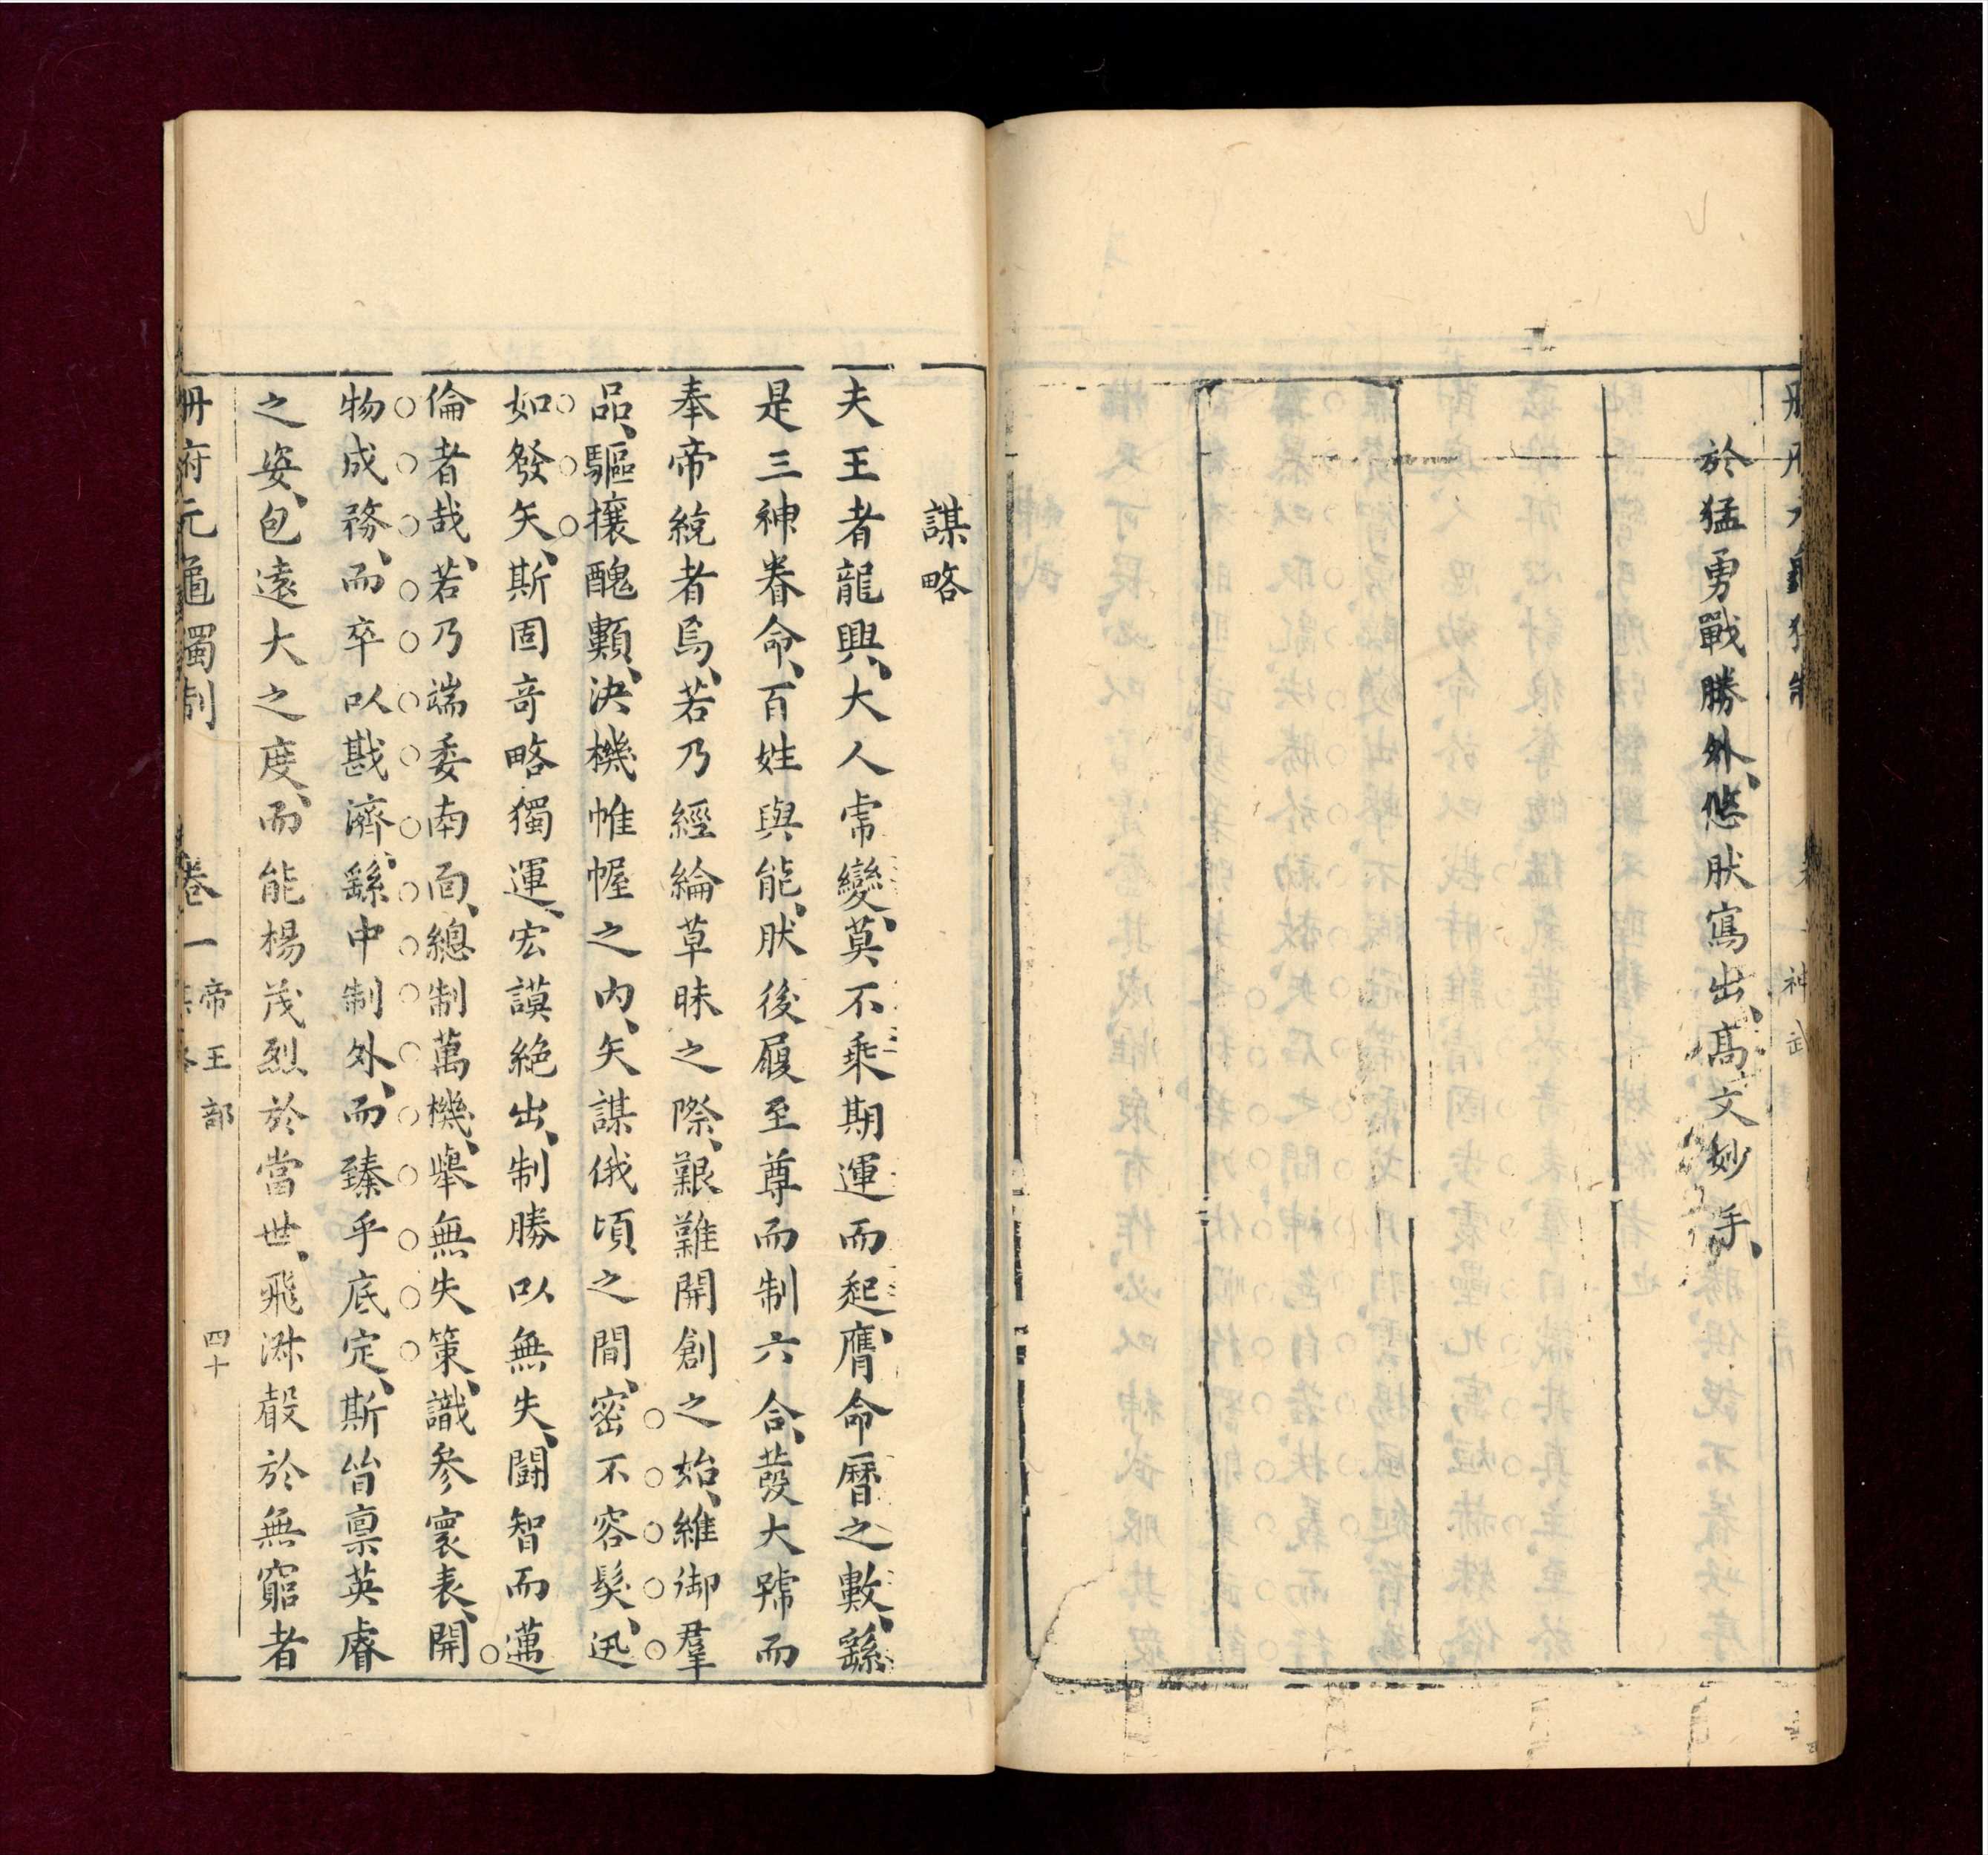 於猛勇戰勝外、悠肰寫出、高文妙手、
神武
謀略
夫王者龍興、大人虎變、莫不乘期運而起、膺命曆之數、繇
是三神眷命、百姓與能、肰後履至尊而制六合、發大號而
奉帝統者焉、若乃經綸草昧之際、艱難開創之始、維御羣
品、驅攘醜類、決機帷幄之內、矢謀俄頃之間、密不容髮、迅
如發矢、斯固奇略獨運、宏謨絕出、制勝以無失、鬬智而邁
倫者哉、若乃端委南面、總制萬機、舉無失策、識參寰表、開
物成務、而卒以戡濟、繇中制外、而臻乎底定、斯皆禀英睿
之姿、包遠大之度、而能楊茂烈於當世、飛淋聲於無窮者
冊府元龜獨制 卷一 帝王部 四十